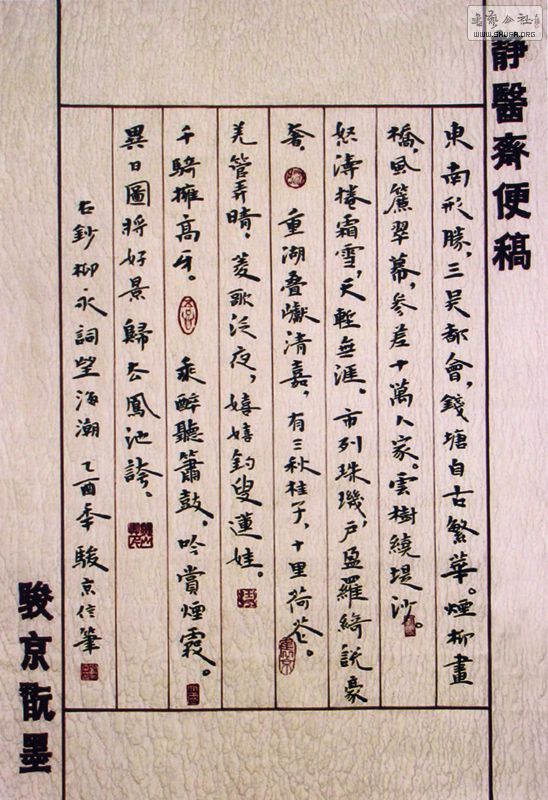 書藝公社
WWW.SHUFA.ORG
静醫齋便稿
東南形勝，三吴都會，錢塘自古繁華。煙柳畫
橋，風簾翠幕，參差十萬人家。雲樹繞堤沙。
怒濤捲霜雪，天輕無涯。市列珠璣，戶盈羅綺説豪
奢。重湖疊巘清嘉，有三秋桂子，十里荷花。
羌管弄晴，菱歌泛夜，嬉嬉釣叟蓮娃。
千騎擁高牙。乘醉聽簫鼓，吟賞煙霞。
異日圖將好景，歸去鳳池誇。
右鈔柳永詞望海潮 乙酉年 駿京信筆
駿京墨